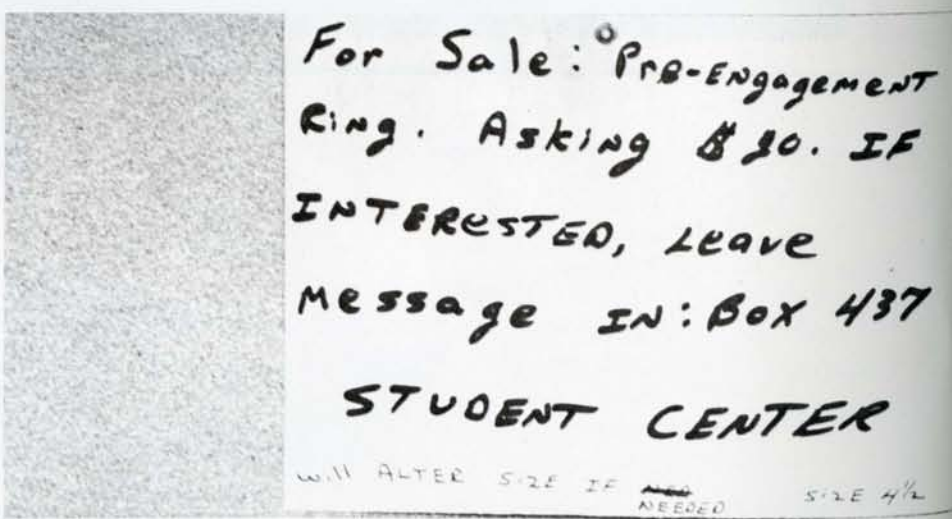 For Sale: Pre-Engagement
Ring. Asking $20. IF
INTERESTED, Leave
Message IN: Box 437
STUDENT CENTER
will ALTER SIZE IF NEEDED SIZE 4½